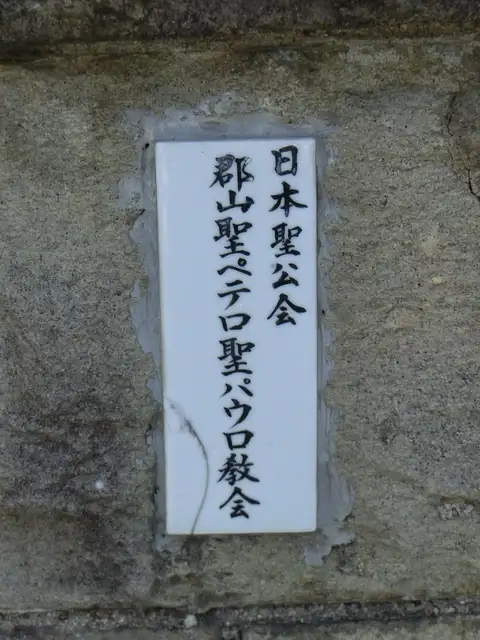 日本聖公会
郡山聖ペテロ聖パウロ教会